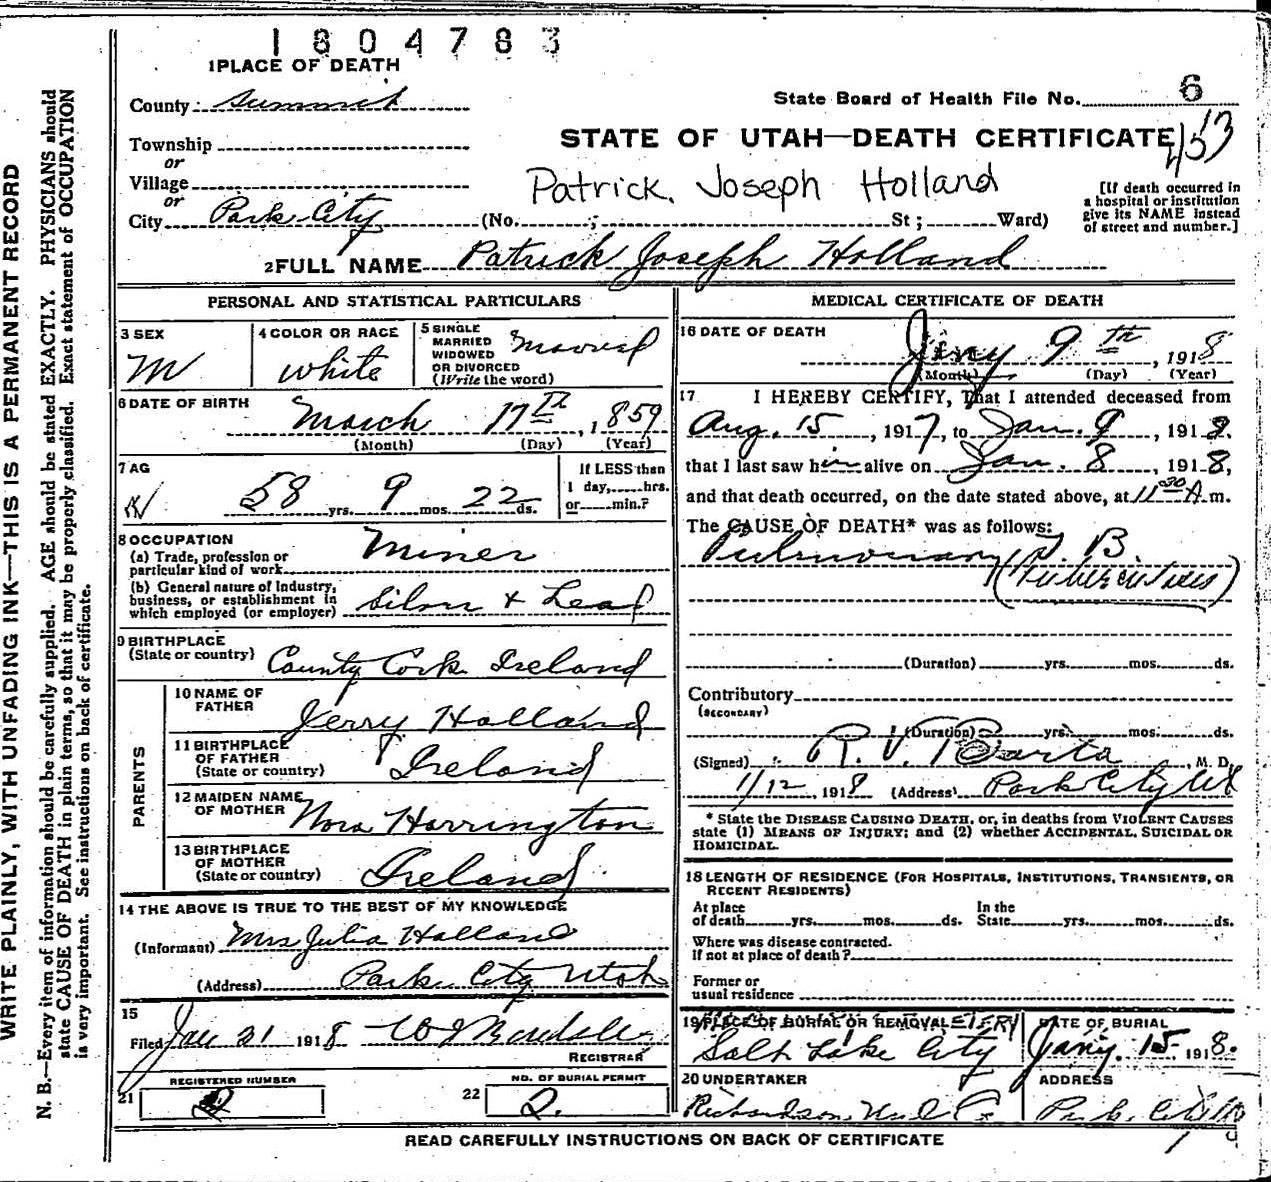 1804783
1 PLACE OF DEATH
County Summit
State Board of Health File No. 6
Township
STATE OF UTAH—DEATH CERTIFICATE
or
Village
Patrick Joseph Holland
[If death occurred in
a hospital or institution
give its NAME instead
of street and number.]
or
City Park City (No. ; St ; Ward)
2 FULL NAME Patrick Joseph Holland
PERSONAL AND STATISTICAL PARTICULARS
3 SEX
M
4 COLOR OR RACE
White
5 SINGLE
MARRIED
WIDOWED
OR DIVORCED
(Write the word)
Married
6 DATE OF BIRTH
March 17th, 1859
(Month) (Day) (Year)
7 AG
58 yrs. 9 mos. 22 ds.
If LESS than
1 day, hrs.
or min.?
8 OCCUPATION
(a) Trade, profession or
particular kind of work
Miner
(b) General nature of Industry,
business, or establishment in
which employed (or employer)
Silver + Lead
9 BIRTHPLACE
(State or country)
County Cork Ireland
PARENTS
10 NAME OF
FATHER
Jerry Holland
11 BIRTHPLACE
OF FATHER
(State or country)
Ireland
12 MAIDEN NAME
OF MOTHER
Nora Harrington
13 BIRTHPLACE
OF MOTHER
(State or country)
Ireland
14 THE ABOVE IS TRUE TO THE BEST OF MY KNOWLEDGE
(Informant) Mrs Julia Holland
(Address) Park City Utah
15
Filed Jan 21 1918
REGISTRAR
REGISTERED NUMBER
21
NO. OF BURIAL PERMIT
22 2.
MEDICAL CERTIFICATE OF DEATH
16 DATE OF DEATH
Jany 9th, 1918
(Month) (Day) (Year)
17 I HEREBY CERTIFY, That I attended deceased from
Aug. 15, 1917, to Jan. 9, 1918.
that I last saw him alive on Jan. 8, 1918,
and that death occurred, on the date stated above, at 11 30 A m.
The CAUSE OF DEATH* was as follows:
Pulmonary T. B.
(Tuberculosis)
(Duration) yrs. mos. ds.
Contributory
(SECONDARY)
(Duration) yrs. mos. ds.
(Signed) R. V. Barta, M. D.
1/12, 1918 (Address) Park City Ut
* State the DISEASE CAUSING DEATH, or, in deaths from VIOLENT CAUSES
state (1) MEANS OF INJURY; and (2) whether ACCIDENTAL, SUICIDAL OR
HOMICIDAL.
18 LENGTH OF RESIDENCE (FOR HOSPITALS, INSTITUTIONS, TRANSIENTS, OR
RECENT RESIDENTS)
At place
of death yrs. mos. ds.
In the
State yrs. mos. ds.
Where was disease contracted.
If not at place of death?
Former or
usual residence
19 PLACE OF BURIAL OR REMOVAL
Salt Lake City
DATE OF BURIAL
Jany. 15 1918.
20 UNDERTAKER
Richardson Und Co
ADDRESS
Park City
READ CAREFULLY INSTRUCTIONS ON BACK OF CERTIFICATE
WRITE PLAINLY, WITH UNFADING INK—THIS IS A PERMANENT RECORD
N. B.—Every item of information should be carefully supplied. AGE should be stated EXACTLY. PHYSICIANS should
state CAUSE OF DEATH in plain terms, so that it may be properly classified. Exact statement of OCCUPATION
is very important. See instructions on back of certificate.